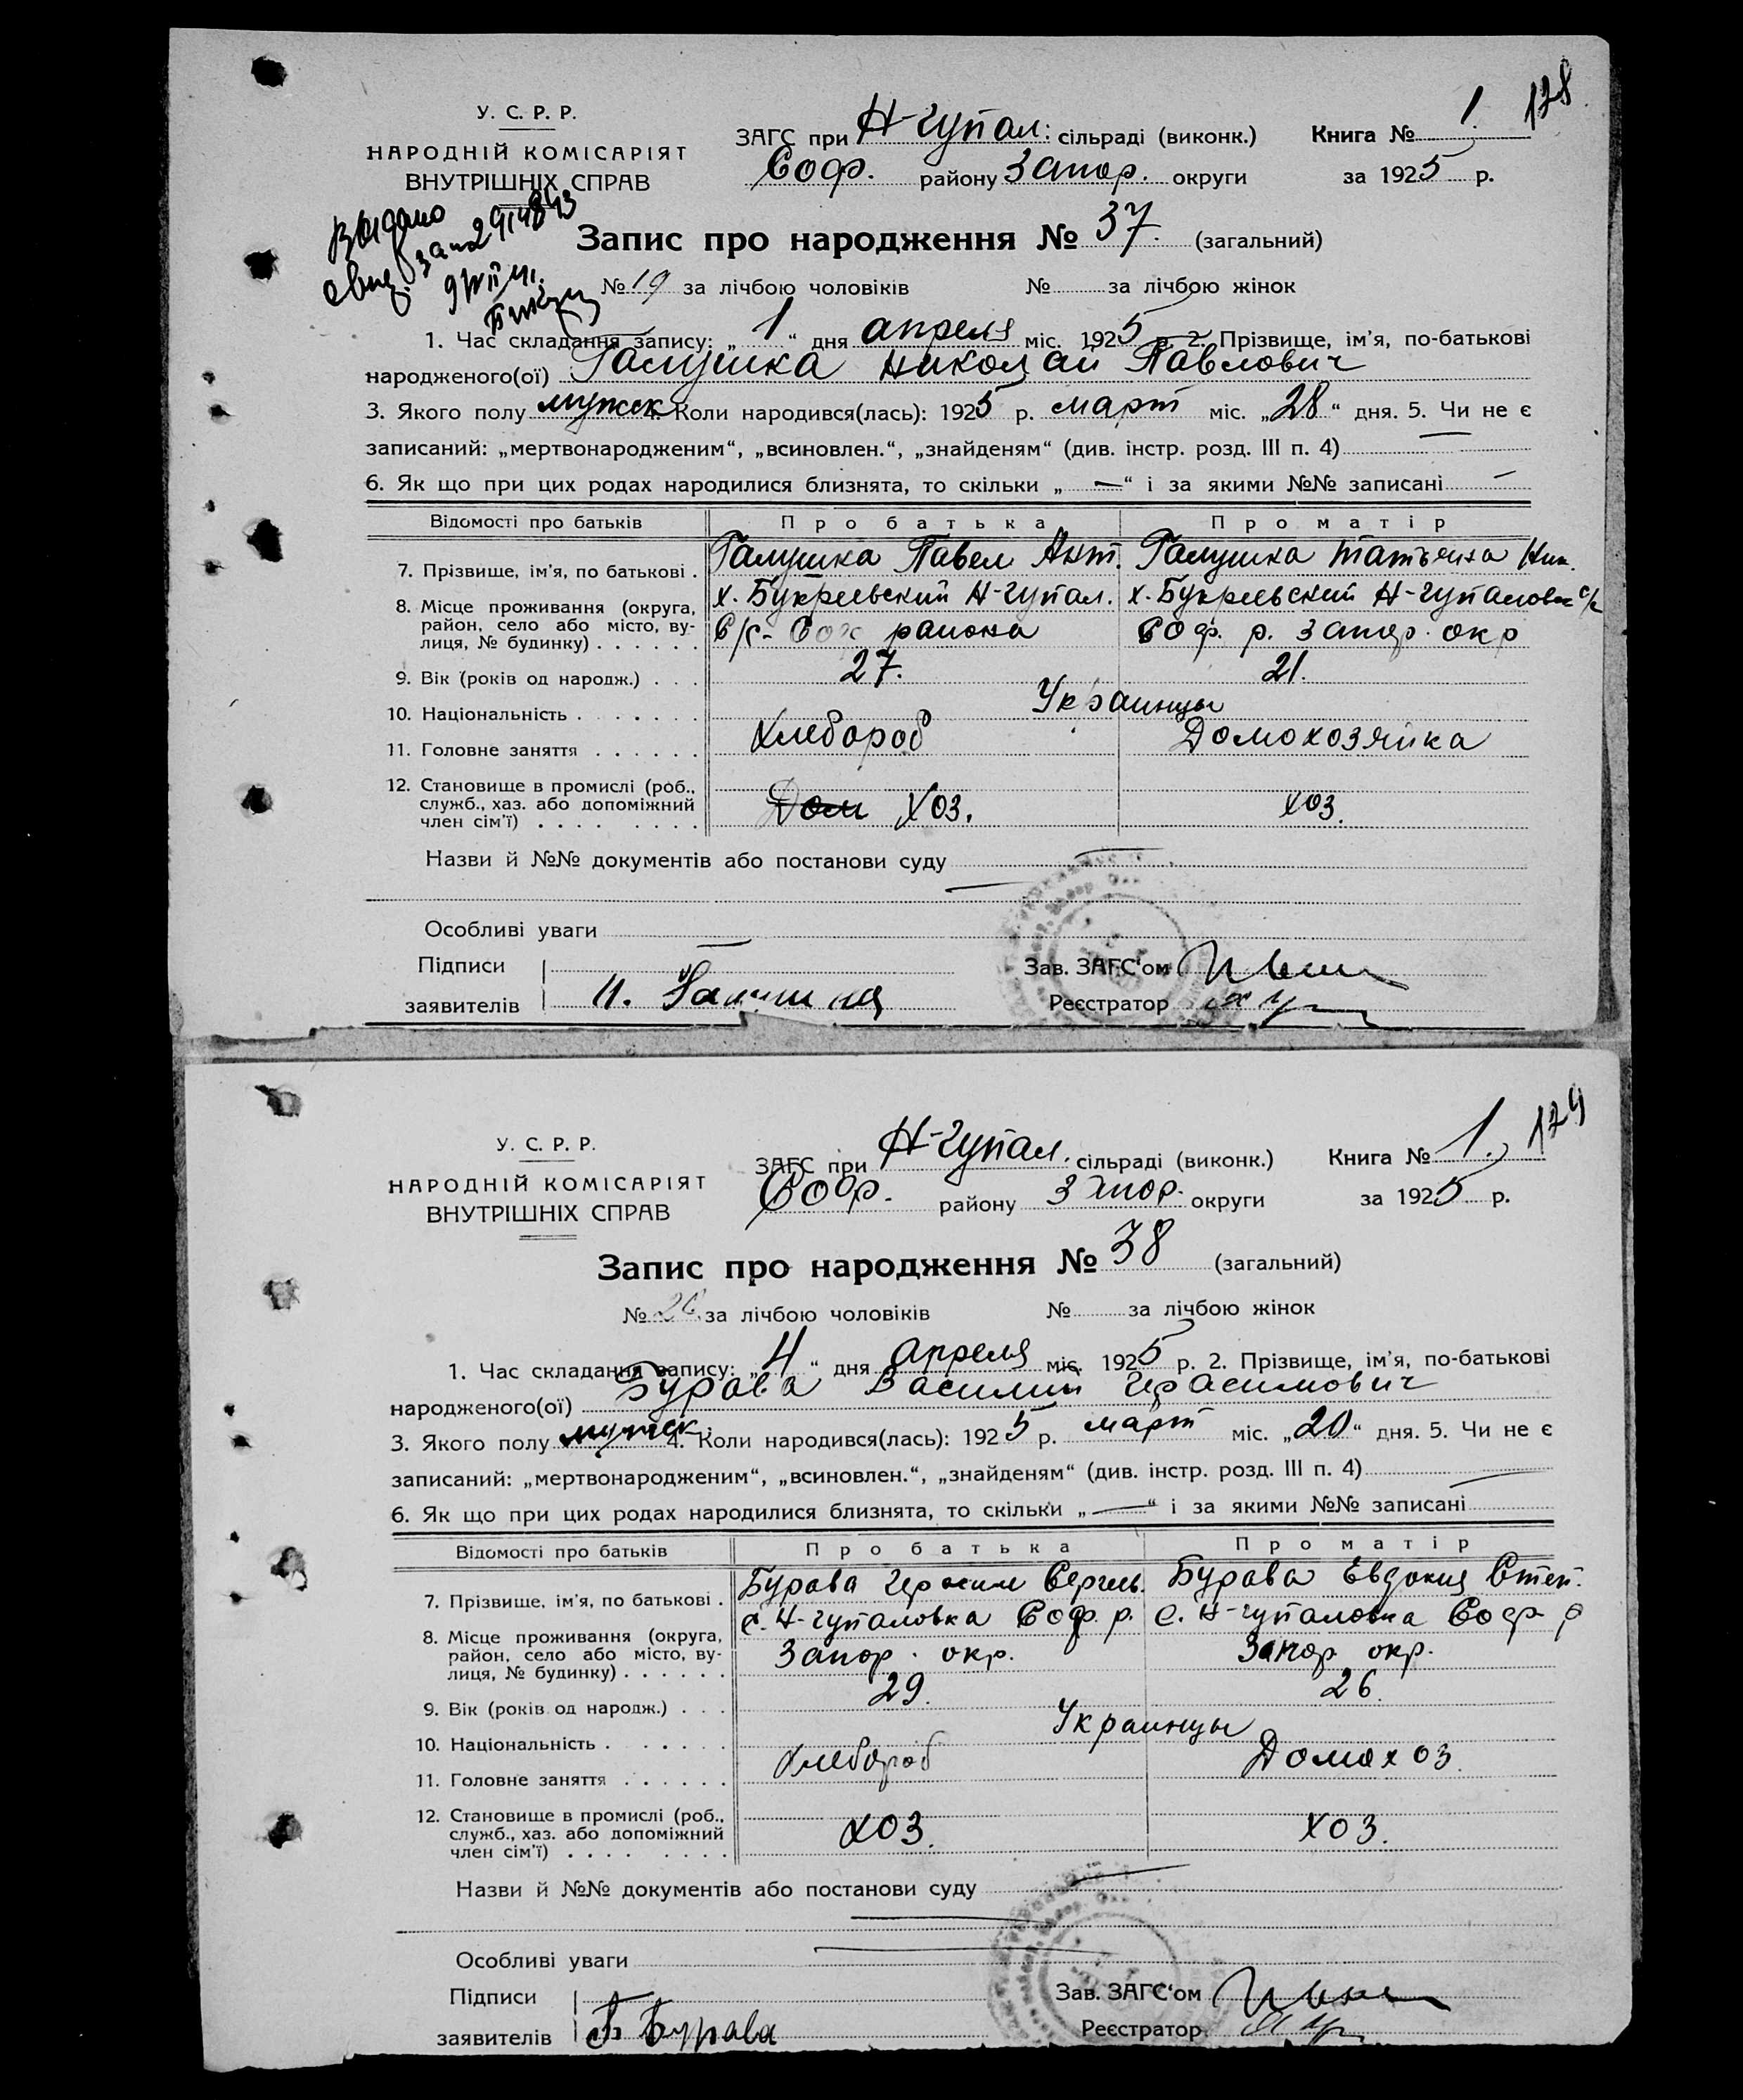 128
У. С. Р. Р.
НАРОДНІЙ КОМІСАРІЯТ
ВНУТРІШНІХ СПРАВ
ЗАГС при Н-Чупал. сільраді (виконк.) Книга № 1.
Соф. району Запор. округи за 1925 р.
Выдано
свид.
Запис про народження № 37. (загальний)
№ 19 за лічбою чоловіків № за лічбою жінок
1. Час складання запису: „ 1 “ дня апреля міс. 1925 р. 2. Прізвище, ім’я, по-батькові
народженого(ої) Галушка Николай Павлович
3. Якого полу мужск 4. Коли народився(лась): 1925 р. март міс. „28“ дня. 5. Чи не є
записаний: „мертвонародженим“, „всиновлен.“, „знайденям“ (див. інстр. розд. III п. 4) —
6. Як що при цих родах народилися близнята, то скільки „ — “ і за якими №№ записані —
Відомості про батьків Про батька Про матір
7. Прізвище, ім’я, по батькові . Галушка Павел Ант. Галушка Татьяна Ник.
8. Місце проживання (округа, х. Букреевский Н-Чупал. х. Букреевский Н-Чупаловск с/с
район, село або місто, ву- С/с- Соф района Соф. р. Запор. окр
лиця, № будинку) . . . . . .
9. Вік (років од народж.) . . . 27. 21.
10. Національність . . . . . . . Украинцы
11. Головне заняття . . . . . . Хлебороб Домохозяйка
12. Становище в промислі (роб.,
служб., хаз. або допоміжний Дом хоз. хоз.
член сім’ї) . . . . . . . .
Назви й №№ документів або постанови суду —
Особливі уваги
Підписи Зав. ЗАГС‘ом
заявителів П. Галушка Реєстратор
129
У. С. Р. Р.
НАРОДНІЙ КОМІСАРІЯТ
ВНУТРІШНІХ СПРАВ
ЗАГС при Н-Чупал. сільраді (виконк.) Книга № 1.
Соф. району Запор. округи за 1925 р.
Запис про народження № 38 (загальний)
№ 20. за лічбою чоловіків № за лічбою жінок
1. Час складання запису: „ 4 “ дня апреля міс. 1925 р. 2. Прізвище, ім’я, по-батькові
народженого(ої) Бурава Василий Герасимович
3. Якого полу мужск. 4. Коли народився(лась): 1925 р. март міс. „20“ дня. 5. Чи не є
записаний: „мертвонародженим“, „всиновлен.“, „знайденям“ (див. інстр. розд. III п. 4) —
6. Як що при цих родах народилися близнята, то скільки „ — “ і за якими №№ записані
Відомості про батьків Про батька Про матір
7. Прізвище, ім’я, по батькові . Бурава Герасим Сергеев. Бурава Евдокия Степ.
8. Місце проживання (округа, с. Н-Чупаловка Соф. р. с. Н-Чупаловка Соф р
район, село або місто, ву- Запор. окр. Запор окр.
лиця, № будинку) . . . . . .
9. Вік (років од народж.) . . . 29. 26.
10. Національність . . . . . . Украинцы
11. Головне заняття . . . . . . Хлебороб Домохоз.
12. Становище в промислі (роб.,
служб., хаз. або допоміжний хоз. хоз.
член сім’ї) . . . . . . . .
Назви й №№ документів або постанови суду —
Особливі уваги
Підписи Зав. ЗАГС‘ом
заявителів Бурава Реєстратор